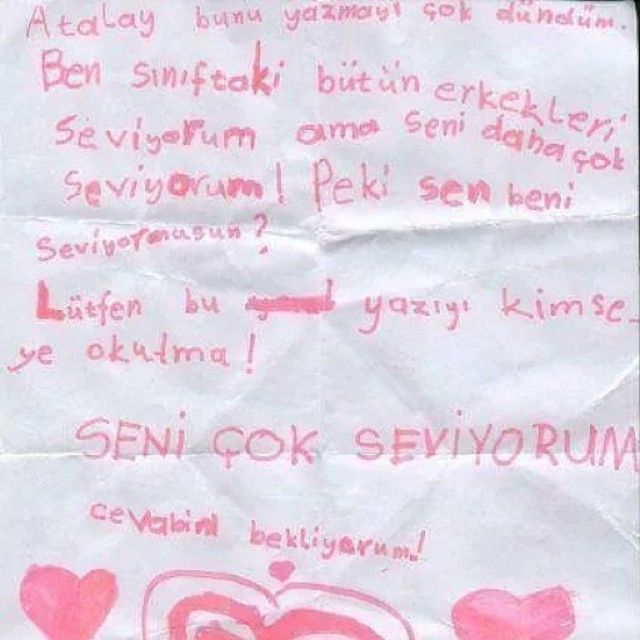 Atalay bunu yazmayı çok dündüm.
Ben sınıftaki bütün erkekleri
seviyorum ama seni daha çok
seviyorum! Peki sen beni
seviyormusun?
Lütfen bu yazıyı kimse-
ye okutma!
SENİ ÇOK SEVİYORUM
cevabini bekliyorum!